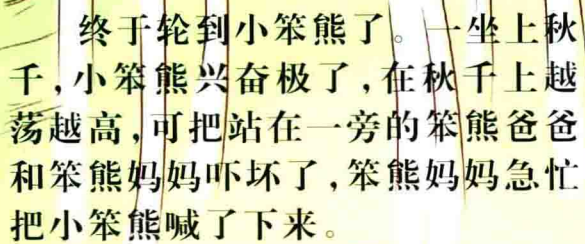 终于轮到小笨熊了。一坐上秋
千,小笨熊兴奋极了,在秋千上越
荡越高,可把站在一旁的笨熊爸爸
和笨熊妈妈吓坏了,笨熊妈妈急忙
把小笨熊喊了下来。